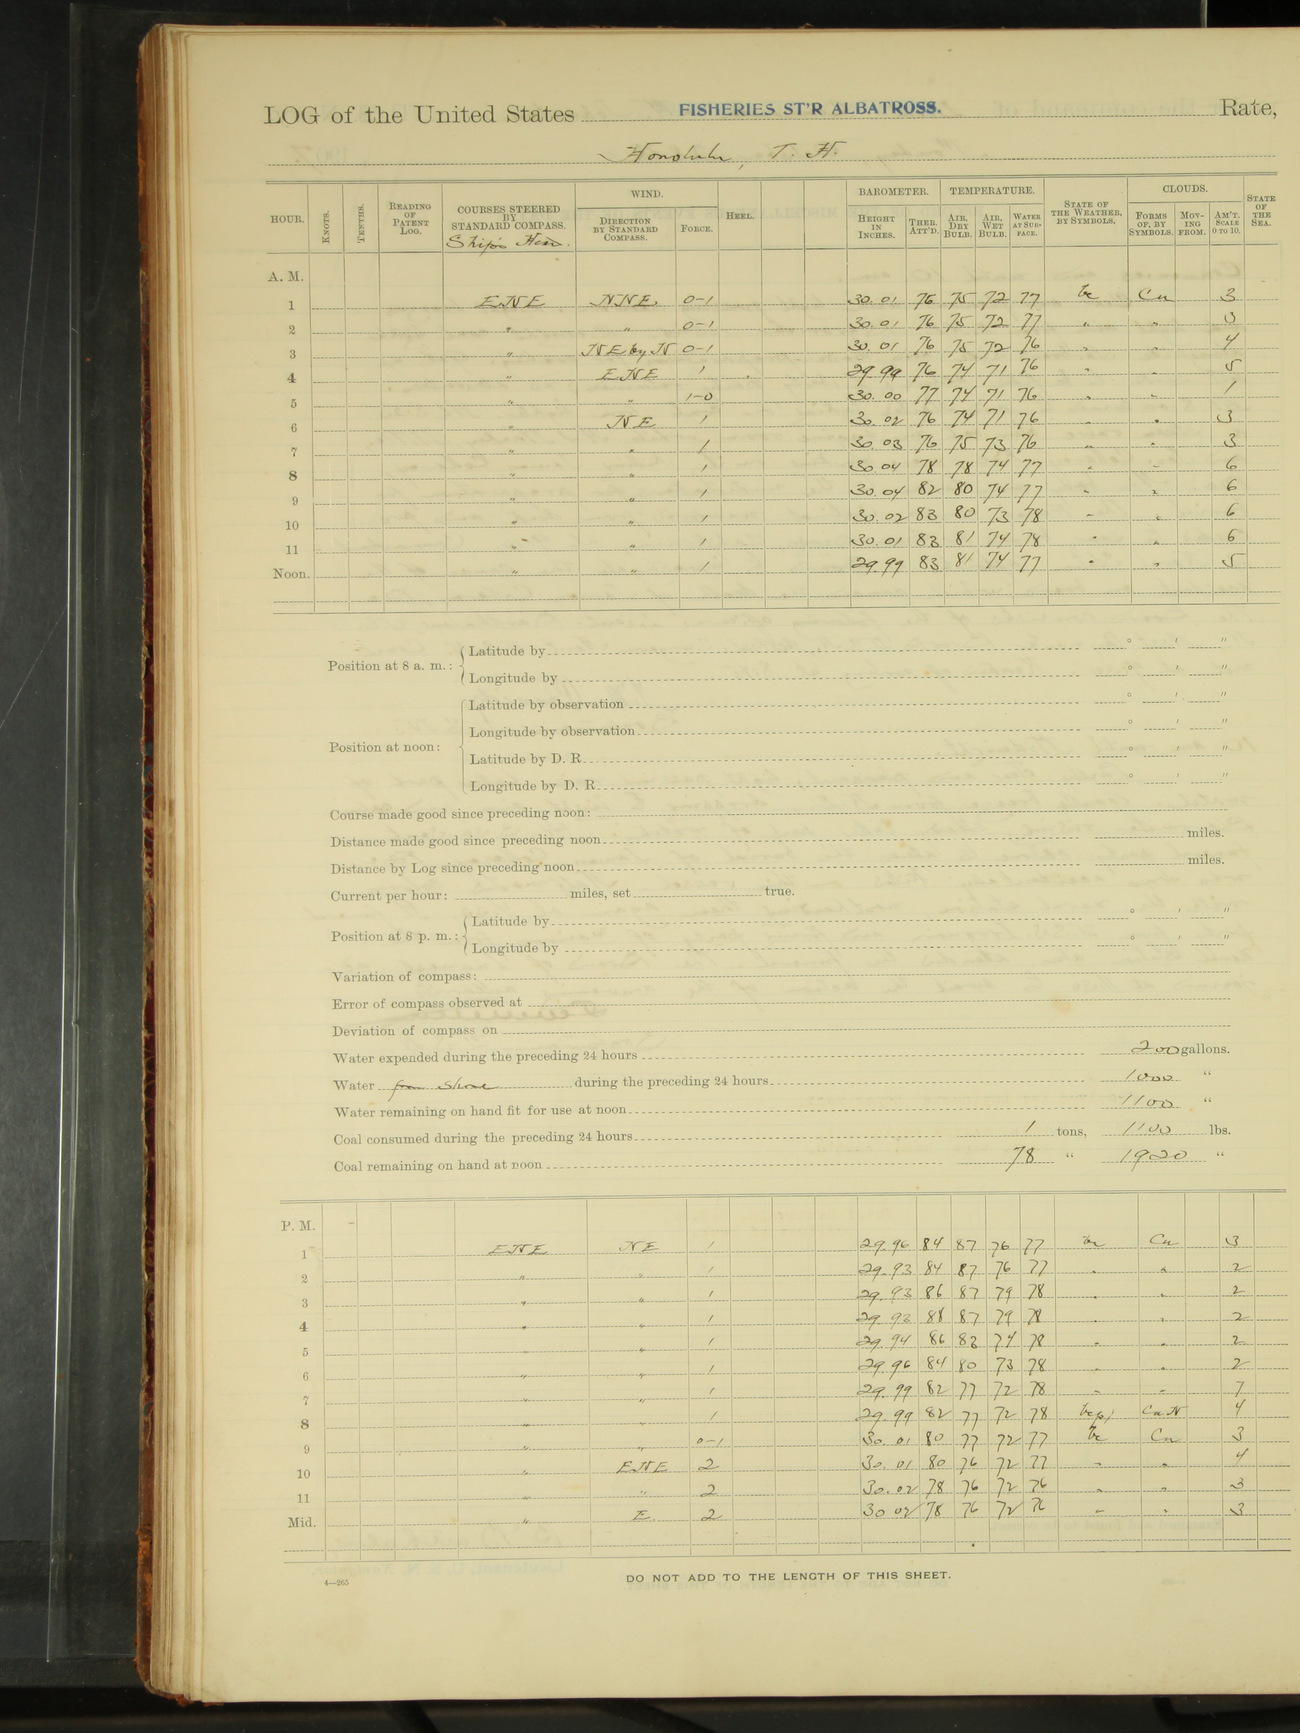 LOG of the United States FISHERIES ST'R ALBATROSS. Rate,
Honolulu, T. H.
HOUR. KNOTS. TENTHS. READING OF PATENT LOG. COURSES STEERED BY STANDARD COMPASS. Ship's Head. WIND. DIRECTION BY STANDARD COMPASS. FORCE. HEEL. BAROMETER. HEIGHT IN INCHES. THER. ATT'D. TEMPERATURE. AIR, DRY BULB. AIR, WET BULB. WATER AT SURFACE. STATE OF THE WEATHER, BY SYMBOLS. CLOUDS. FORMS OF, BY SYMBOLS. MOVING FROM. AM'T. SCALE 0 TO 10. STATE OF THE SEA.
A. M.
1 ENE NNE. 0-1 30.01 76 75 72 77 bc Cu 3
2 " " 0-1 30.01 76 75 72 77 " " 3
3 " NE by N 0-1 30.01 76 75 72 76 " " 4
4 " ENE 1 29.99 76 74 71 76 " " 5
5 " " 1-0 30.00 77 74 71 76 " " 1
6 " NE 1 30.02 76 74 71 76 " " 3
7 " " 1 30.03 76 75 73 76 " " 3
8 " " 1 30.04 78 78 74 77 " " 6
9 " " 1 30.04 82 80 74 77 " " 6
10 " " 1 30.02 83 80 73 78 " " 6
11 " " 1 30.01 83 81 74 78 " " 6
Noon. " " 1 29.99 83 81 74 77 " " 5
Position at 8 a. m.: Latitude by ° ' "
Longitude by ° ' "
Position at noon: Latitude by observation ° ' "
Longitude by observation ° ' "
Latitude by D. R. ° ' "
Longitude by D. R. ° ' "
Course made good since preceding noon:
Distance made good since preceding noon miles.
Distance by Log since preceding noon miles.
Current per hour: miles, set true.
Position at 8 p. m.: Latitude by ° ' "
Longitude by ° ' "
Variation of compass:
Error of compass observed at
Deviation of compass on
Water expended during the preceding 24 hours 200 gallons.
Water from shore during the preceding 24 hours 1000 "
Water remaining on hand fit for use at noon 1100 "
Coal consumed during the preceding 24 hours 1 tons, 1100 lbs.
Coal remaining on hand at noon 78 " 1920 "
P. M.
1 ENE NE 1 29.96 84 87 76 77 bc Cu 3
2 " " 1 29.93 84 87 76 77 " " 2
3 " " 1 29.93 86 87 79 78 " " 2
4 " " 1 29.93 88 87 79 78 " " 2
5 " " 1 29.94 86 83 74 78 " " 2
6 " " 1 29.96 84 80 73 78 " " 2
7 " " 1 29.99 82 77 72 78 " " 7
8 " " 1 29.99 82 77 72 78 Cu N 4
9 " " 0-1 30.01 80 77 72 77 bc Cu 3
10 " ENE 2 30.01 80 76 72 77 " " 4
11 " " 2 30.02 78 76 72 76 " " 3
Mid. " E. 2 30 02 78 76 72 76 " " 3
4—265
DO NOT ADD TO THE LENGTH OF THIS SHEET.